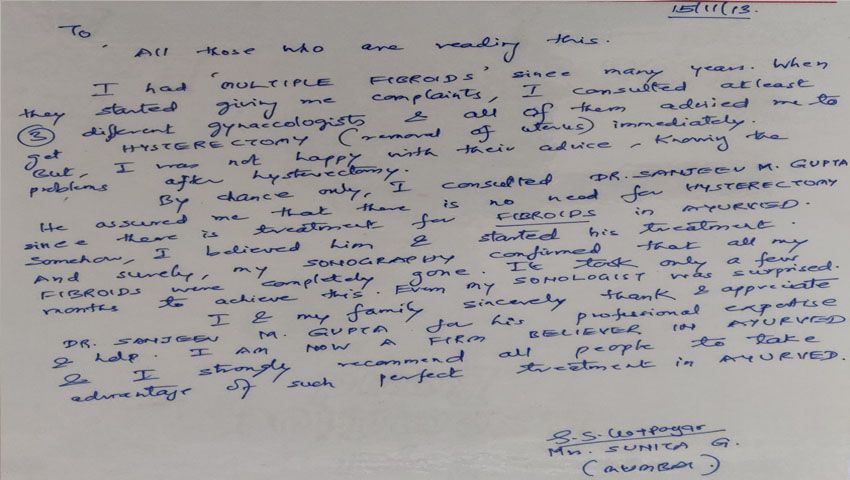 15/11/13.
To
All those who are reading this.
I had 'MULTIPLE FIBROIDS' since many years. When
they started giving me complaints, I consulted atleast
③ different gynaecologists & all of them advised me to
get HYSTERECTOMY (removal of uterus) immediately.
But, I was not happy with their advice, knowing the
problems after hysterectomy.
By chance only, I consulted DR. SANJEEV M. GUPTA
He assured me that there is no need for HYSTERECTOMY
since there is treatment for FIBROIDS in AYURVED.
Somehow, I believed him & started his treatment.
And surely, my SONOGRAPHY confirmed that all my
FIBROIDS were completely gone. It took only a few
months to achieve this. Even my SONOLOGIST was surprised.
I & my family sincerely thank & appreciate
DR. SANJEEV M. GUPTA for his professional expertise
& help. I AM NOW A FIRM BELIEVER IN AYURVED
& I strongly recommend all people to take
advantage of such perfect treatment in AYURVED.
Mrs. SUNITA G.
(MUMBAI.)